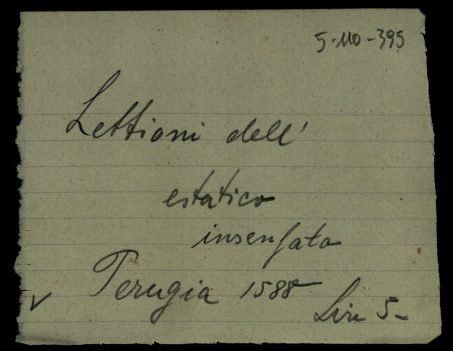 5-110-395
Lettioni dell'
estatico
insensato
Perugia 1588
Lire 5-